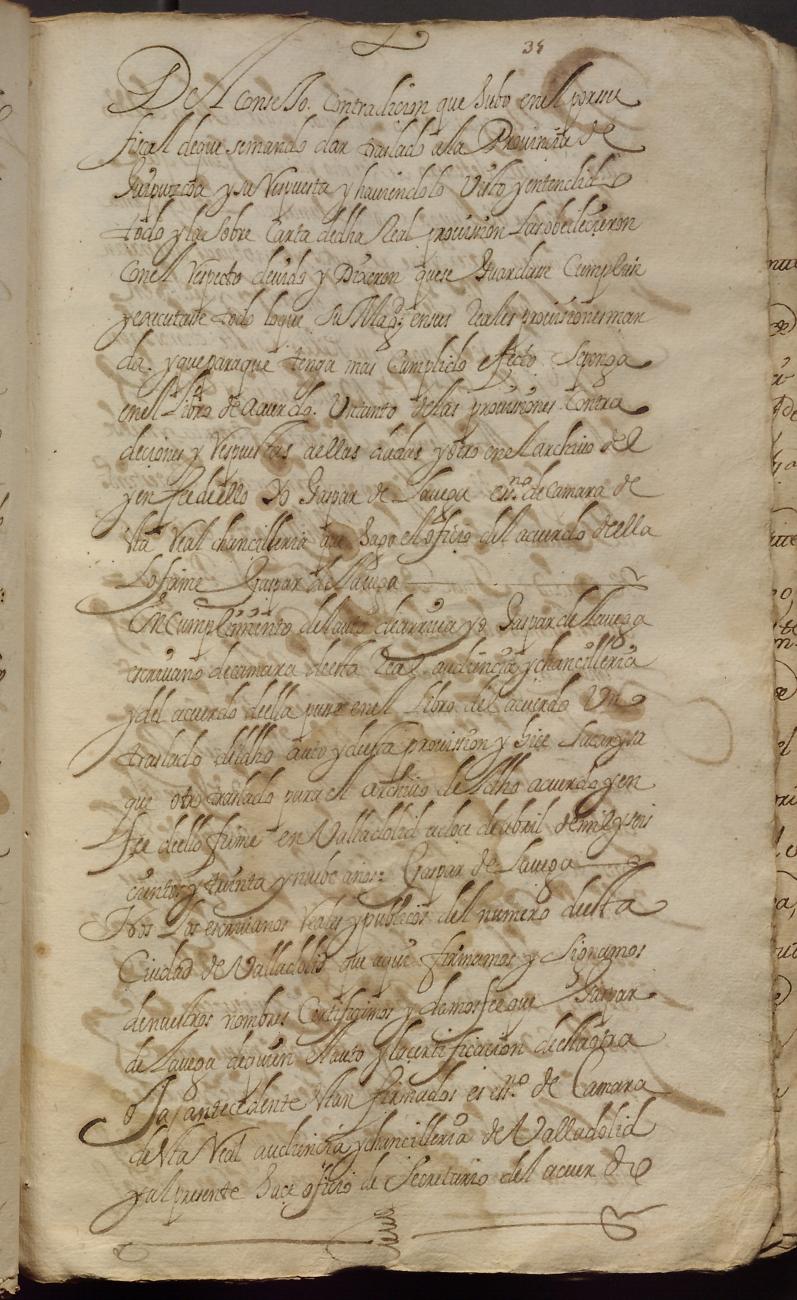 35
Del consejo. Contradicion que hubo en el por su
fiscal de que se mando dar traslado a la Provincia de
Guipuzcoa y su Respuesta y haviendolo Visto y entendido
todo y la sobre Carta de dha Real provision Las obedecieron
con el Respecto devido y Dixeron que se Guardase Cumpliese
y executase todo lo que Su Magd. en sus Reales provisiones man
da. y que para que tenga mas Cumplido efecto Se ponga
en el Libro de Acuerdo. Un tanto de las provisiones Contra
deciones y Respuestas a ellas dadas y otro en el archivo del
y en fee de ello Yo Gaspar de Lavega essno. de Camara de
esta Real chancilleria que hago el oficio del acuerdo de ella
Lo firme Gaspar de Lavega
En Cumplimiento del auto de arriva yo Gaspar de Lavega
escrivano de camara de esta Real audiencia y chancilleria
y del acuerdo della puse en el Libro del acuerdo Un
traslado del dho auto y desta provission y hice Sacar y sa
que otro traslado para el archivo del dho acuerdo y en
fee dello firme en Valladolid a doce de abril de mil y seis
cientos y treinta y nuebe años: Gaspar de Lavega
Nos Los escrivanos Reales y publicos del numero desta
Ciudad de Valladolid que aqui firmamos y Signamos
de nuestros nombres Certificamos y damos fee que Gaspar
de Lavega de quien el auto y la certificacion de la otra
oja antecedente Van firmados es essno. de Camara
de esta Real audiencia y chancilleria de Valladolid
y al presente hace oficio de Secretario del acuerdo